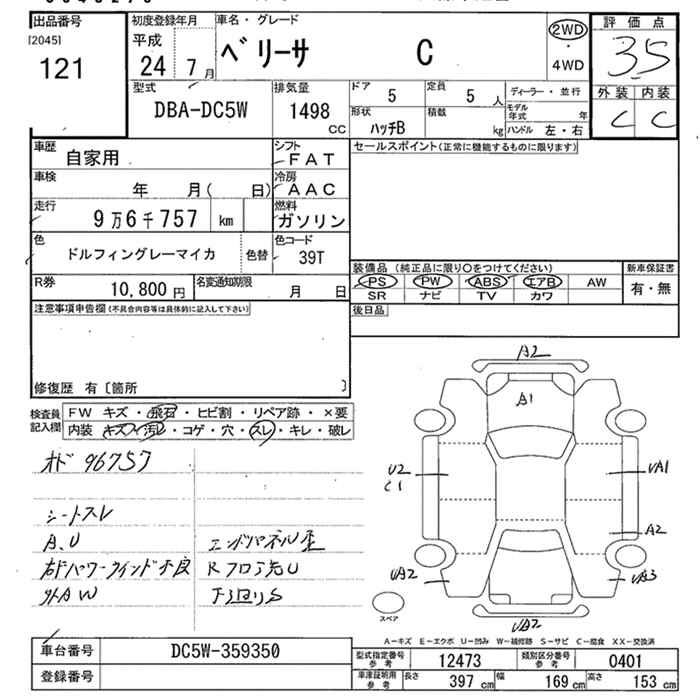 出品番号
[2045]
121
初度登録年月
平成
24 7月
車名・グレード
ベリーサ C
2WD
・
4WD
評価点
3.5
外装 内装
C C
型式
DBA-DC5W
排気量
1498
CC
ドア
5
定員
5 人
形状
ハッチB
積数
kg
ディーラー・並行
モデル年式 年
ハンドル 左・右
車歴
自家用
シフト
FAT
車検
年 月( 日)
冷房
AAC
走行
9万6千757 km
燃料
ガソリン
色
ドルフィングレーマイカ
色替
色コード
39T
R券
10,800 円
名変通知期限
月 日
セールスポイント(正常に機能するものに限ります)
装備品(純正品に限り○をつけてください)
PS PW ABS エアB AW
SR ナビ TV カワ
新車保証書
有・無
後日品
注意事項申告欄(不具合内容等は具体的に記入して下さい)
修復歴 有〔箇所 〕
検査員記入欄
FW キズ・飛石・ヒビ割・リペア跡・×要
内装 キズ・汚レ・コゲ・穴・スレ・キレ・破レ
オド 96757
シートスレ
A、U
右ドパワーウインド不良
外AW
エンドパネル歪
Rフロア先U
下廻りS
A2
A1
U2
C1
UA1
A2
UA2
UA3
UA2
スペア
A-キズ E-エクボ U-凹み W-補修跡 S-サビ C-腐食 XX-交換済
車台番号
DC5W-359350
登録番号
型式指定番号
参考
12473
類別区分番号
参考
0401
車庫証明用
参考
長さ 397 cm 幅 169 cm 高さ 153 cm